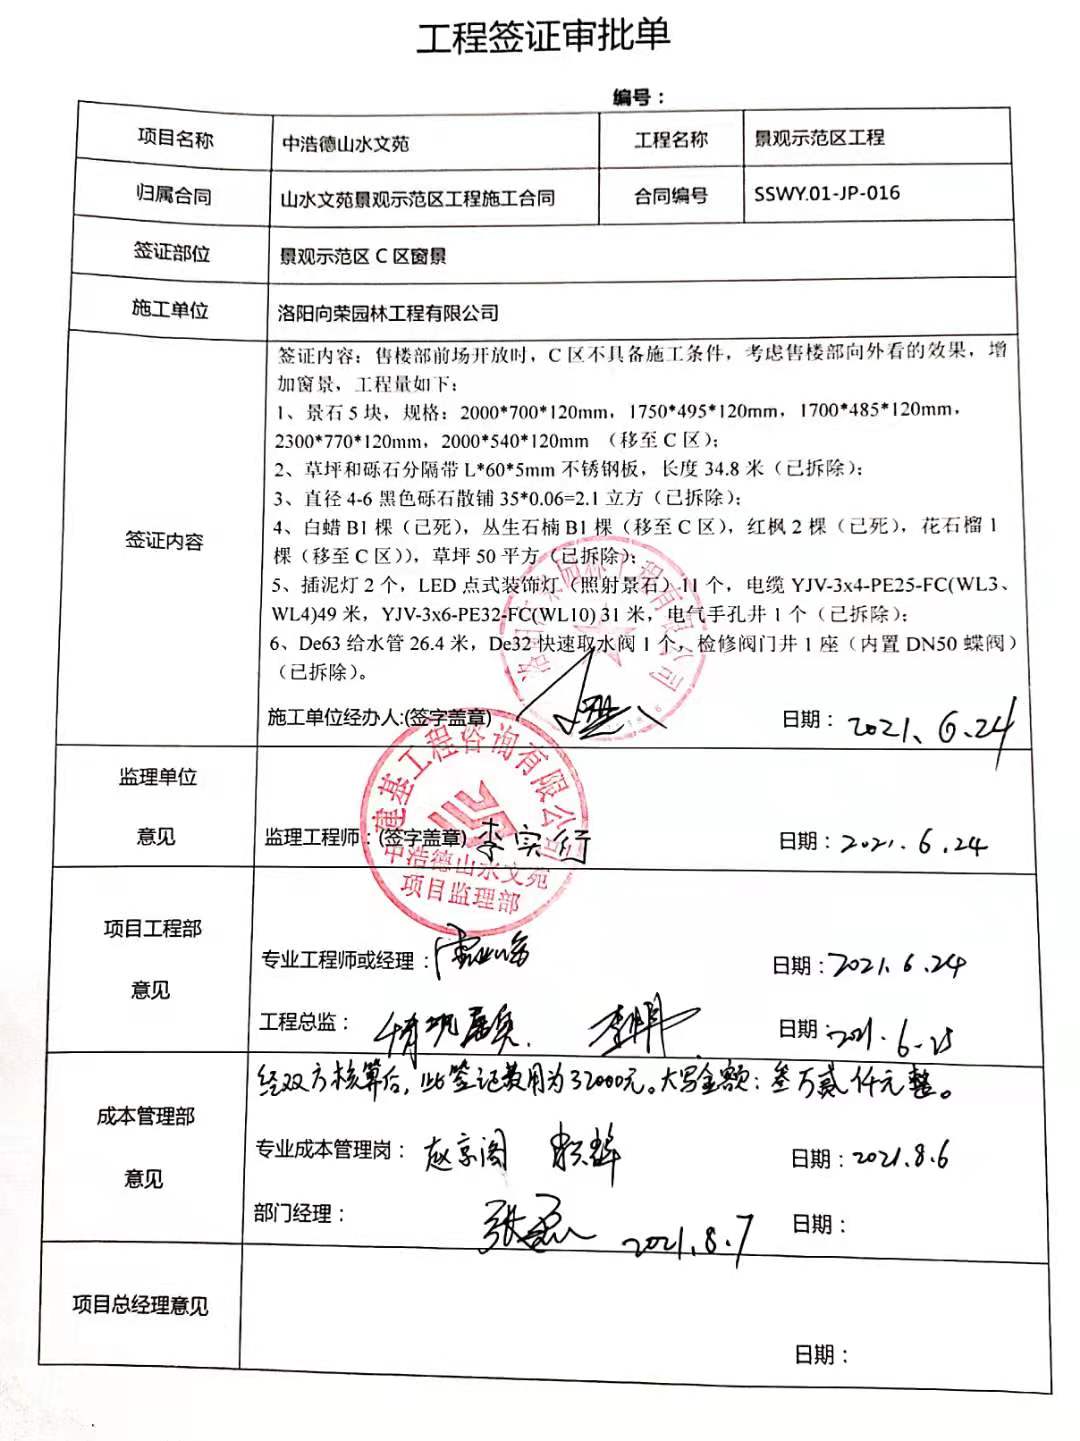 工程签证审批单
编号：
项目名称 中浩德山水文苑 工程名称 景观示范区工程
归属合同 山水文苑景观示范区工程施工合同 合同编号 SSWY.01-JP-016
签证部位 景观示范区 C 区窗景
施工单位 洛阳向荣园林工程有限公司
签证内容
签证内容：售楼部前场开放时，C 区不具备施工条件，考虑售楼部向外看的效果，增
加窗景，工程量如下：
1、景石 5 块，规格：2000*700*120mm，1750*495*120mm，1700*485*120mm，
2300*770*120mm，2000*540*120mm （移至 C 区）；
2、草坪和砾石分隔带 L*60*5mm 不锈钢板，长度 34.8 米（已拆除）；
3、直径 4-6 黑色砾石散铺 35*0.06=2.1 立方（已拆除）；
4、白蜡 B1 棵（已死），丛生石楠 B1 棵（移至 C 区），红枫 2 棵（已死），花石榴 1
棵（移至 C 区)），草坪 50 平方（已拆除）；
5、插泥灯 2 个，LED 点式装饰灯（照射景石）11 个，电缆 YJV-3x4-PE25-FC(WL3、
WL4)49 米，YJV-3x6-PE32-FC(WL10) 31 米，电气手孔井 1 个（已拆除）；
6、De63 给水管 26.4 米，De32 快速取水阀 1 个，检修阀门井 1 座（内置 DN50 蝶阀）
（已拆除）。
施工单位经办人:(签字盖章) 日期： 2021.6.24
洛阳向荣园林工程有限公司
监理单位
意见
监理工程师：(签字盖章) 李实行 日期：2021.6.24
建基工程咨询有限公司
中浩德山水文苑
项目监理部
项目工程部
意见
专业工程师或经理： 日期：2021.6.24
工程总监： 情况属实. 日期：2021.6.25
成本管理部
意见
经双方核算后，此签证费用为32000元。大写金额：叁万贰仟元整。
专业成本管理岗： 赵京阁 日期：2021.8.6
部门经理： 2021.8.7 日期：
项目总经理意见
日期：